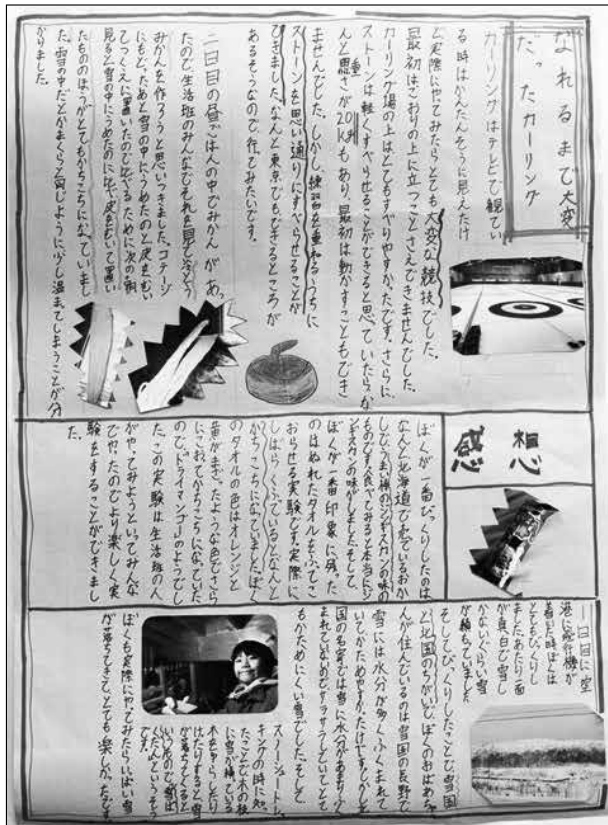 なれるまで大変
だったカーリング
カーリングはテレビで観てい
る時はかんたんそうに思えたけ
ど実際にやってみたらとても大変な競技でした。
最初はこおりの上に立つことさえできませんでした。
カーリング場の上はとてもすべりやすかったです。さらに、
ストーンは軽くすべらせることができると思っていたらな
んと重さが20kgもあり、最初は動かすこともでき
ませんでした。しかし、練習を重ねるうちに
ストーンを思い通りにすべらせることが
できました。なんと東京でもできるところが
あるそうなので、行ってみたいです。
二日目の昼ごはんの中でみかんがあっ
たので、生活班のみんなでそれを見て冷とう
みかんを作ろうと思いつきました。コテージ
にもどったあと雪の中にうめたのと皮をむい
てつくえに置いたので比べるために次の朝
見ると雪の中にうめたのに比べ皮をむいて置い
たもののほうがとてもかちこちになっていまし
た。雪の中だとかまくらと同じように少し温まってしまうことが分
かりました。
感想
ぼくが一番びっくりしたのは
なんと北海道で売ているおか
しで、うまい棒のジンギスカンの味の
ものです。食べてみると本当にジ
ンギスカンの味がしました。そして、
ぼくが一番印象に残った
のはぬれたタオルをふってこ
おらせる実験です。実際に、
しばらくふっているとなんと
かちこちになっていました。ぼく
のタオルの色はオレンジと
黄がまざったような色でさら
にこおってかちこちになっていた
ので、「ドライマンゴー」のようでし
た。この実験は生活班の人
がやってみようといってみんな
でやったのでより楽しく実
験をすることができまし
た。
一日目に空
港に飛行機が
着いた時ぼくは
とてもびっくりし
ました。あたり一面
が真っ白で雪し
かないぐらい雪
が積もていました
そしてびっくりしたことで、雪国
と北国のちがいで、ぼくのおばあちゃ
んが住んでいるのは雪国の長野で
雪には水分が多くふくまれて
いてかためやすかったけどです。しかし北
国の名寄では雪に水分があまりふく
まれていないのでサラサラしていてとて
もかためにくい雪でした。そして
スノーシュートレッ
キングの時に知っ
たことで木の枝
に雪が積っている
木をゆらしたり
けったりすると雪
が落ちてくると
いうもので「雪ば
くだん」というそう
です。
ぼくも実際にやってみたらいっぱい雪
が落ちてきて、とても楽しかったです